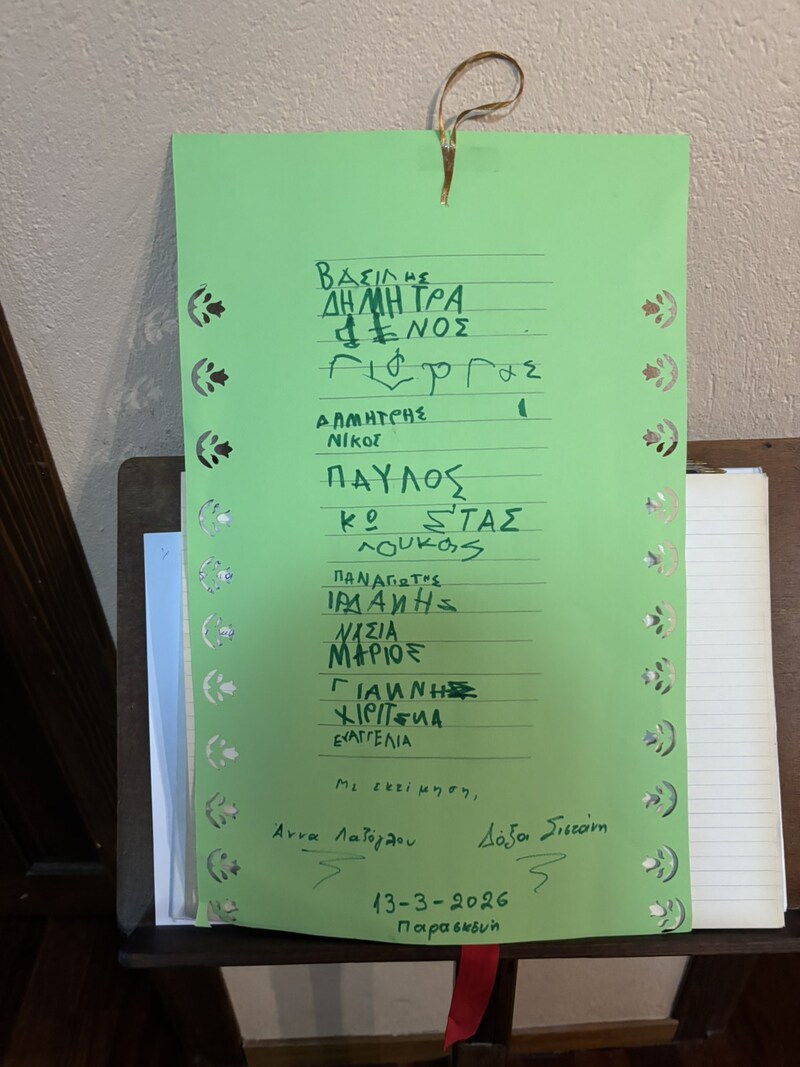 ΒΑΣΙΛΗΣ
ΔΗΜΗΤΡΑ
ΝΟΣ
ΓΙΟΡΓΑΣ
ΔΗΜΗΤΡΗΣ
ΝΙΚΟΣ
ΠΑΥΛΟΣ
ΚΩ ΣΤΑΣ
ΛΟΥΚΑΣ
ΠΑΝΑΓΙΩΤΗΣ
ΝΑΣΙΑ
ΜΑΡΙΟΣ
ΓΙΑΝΝΗΣ
ΕΥΑΓΓΕΛΙΑ
Με εκτίμηση,
Άννα Λαζόγλου Δόξα Σιστάνη
13-3-2026
Παρασκευή